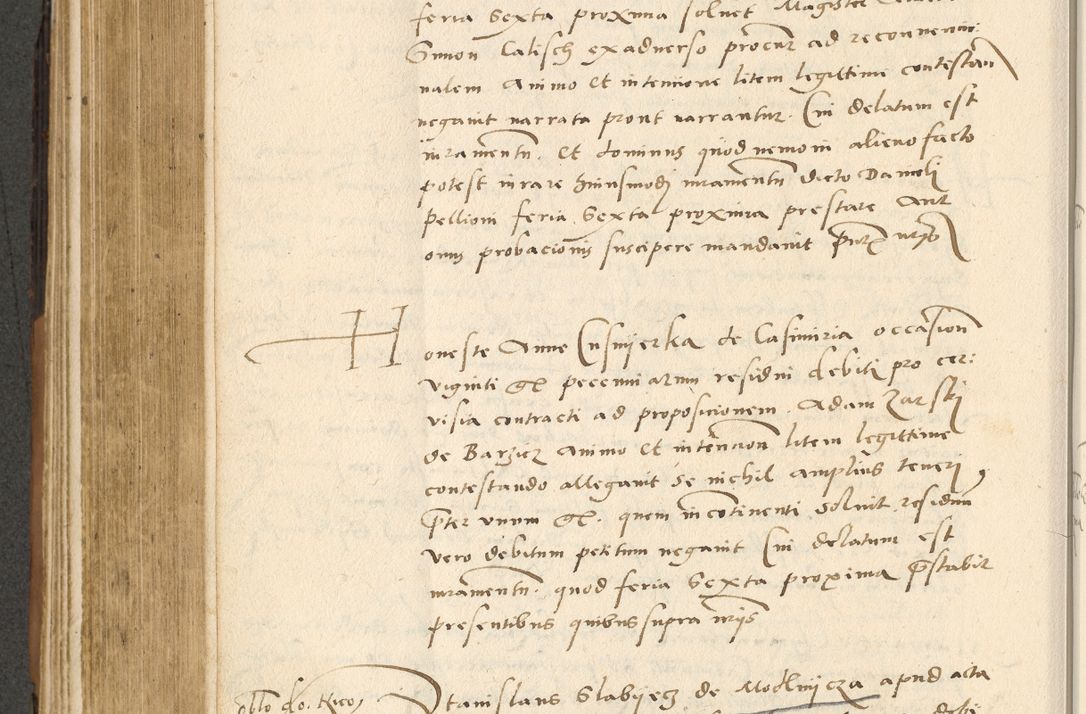 feria Sexta proxima soluet Magister
Simon Calisch exaduerso procur ad reconuencio:
nalem Animo Et intencione litem legittime contestan
negauit narrata prout narrantur. Cui delatum est
iuramentu. Et dominus quod nemo in alieno facto
potest iurare huiusmodj iuramentu dicto Danieli
Pellioni feria Sexta proxima prestare Aut
onus probacionis suscipere mandauit Pntt
Honeste Anne Cusnijerka de Casimiria occasion
viginti Gr peccuniarum residui debitj pro cer:
visia contracti ad proposicionem Adam Zarskj
de Barzicz Animo Et intencion litem legittime
contestando allegauit se nichil amplius tenerj
pter vnum Gr. quem incontinenti soluit residuu
vero debitum petitum negauit Cui delatum est
iuramentu. quod feria Sexta proxima pstabit
presentibus quibus supra
Stanislaus Slabijecz de Modlnijcza apud acta
oblo do.